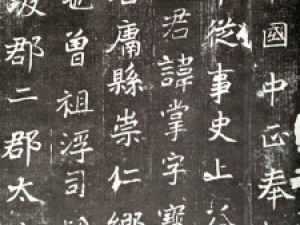 國中正奉
從事史上
君諱掌字寶
庸縣崇仁鄉
曾祖浮司
郡二郡太